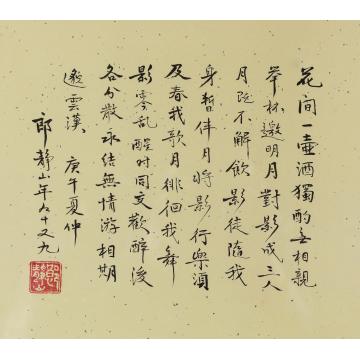 花间一壶酒獨酌無相親
举杯邀明月對影成三人
月既不解飲影徒隨我
身暫伴月將影行樂須
及春我歌月徘徊我舞
影零乱醒时同交歡醉後
各分散永结無情游相期
邈雲漢 庚午夏仲
郎静山年九十又九